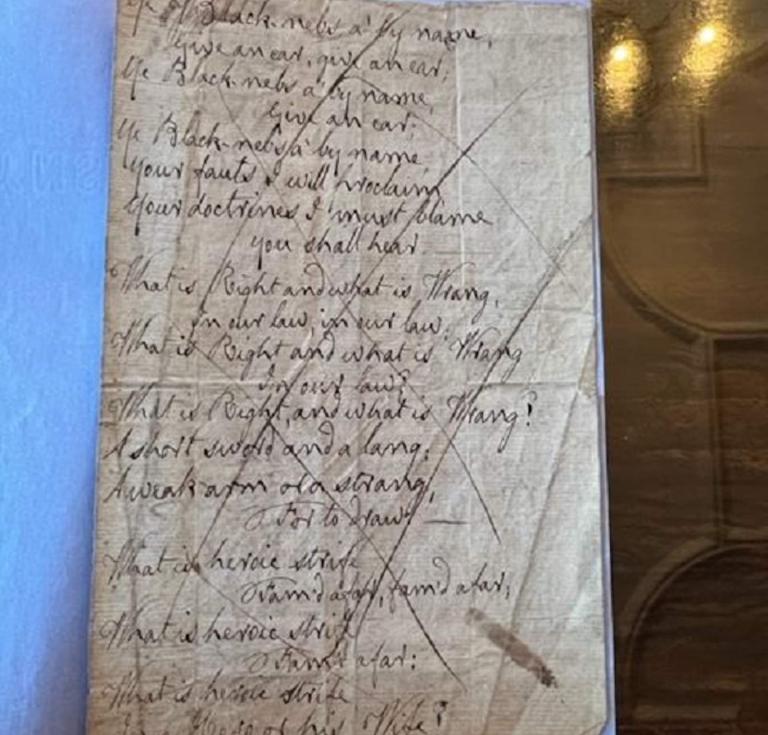 Ye Black-nebs a' by name,
Give an ear, give an ear;
Ye Black-nebs a' by name,
Give an ear;
Ye Black-nebs a' by name
Your fauts I will proclaim
Your doctrines I must blame
you shall hear.
What is Right and what is Wrang,
In our law, in our law,
What is Right and what is Wrang
In our law?
What is Right, and what is Wrang?
A short sword and a lang;
A weak arm or a strang,
For to draw. —
What is heroic strife
Fam'd afar, fam'd afar,
What is heroic strife
Fam'd afar:
What is heroic strife
his Wife?